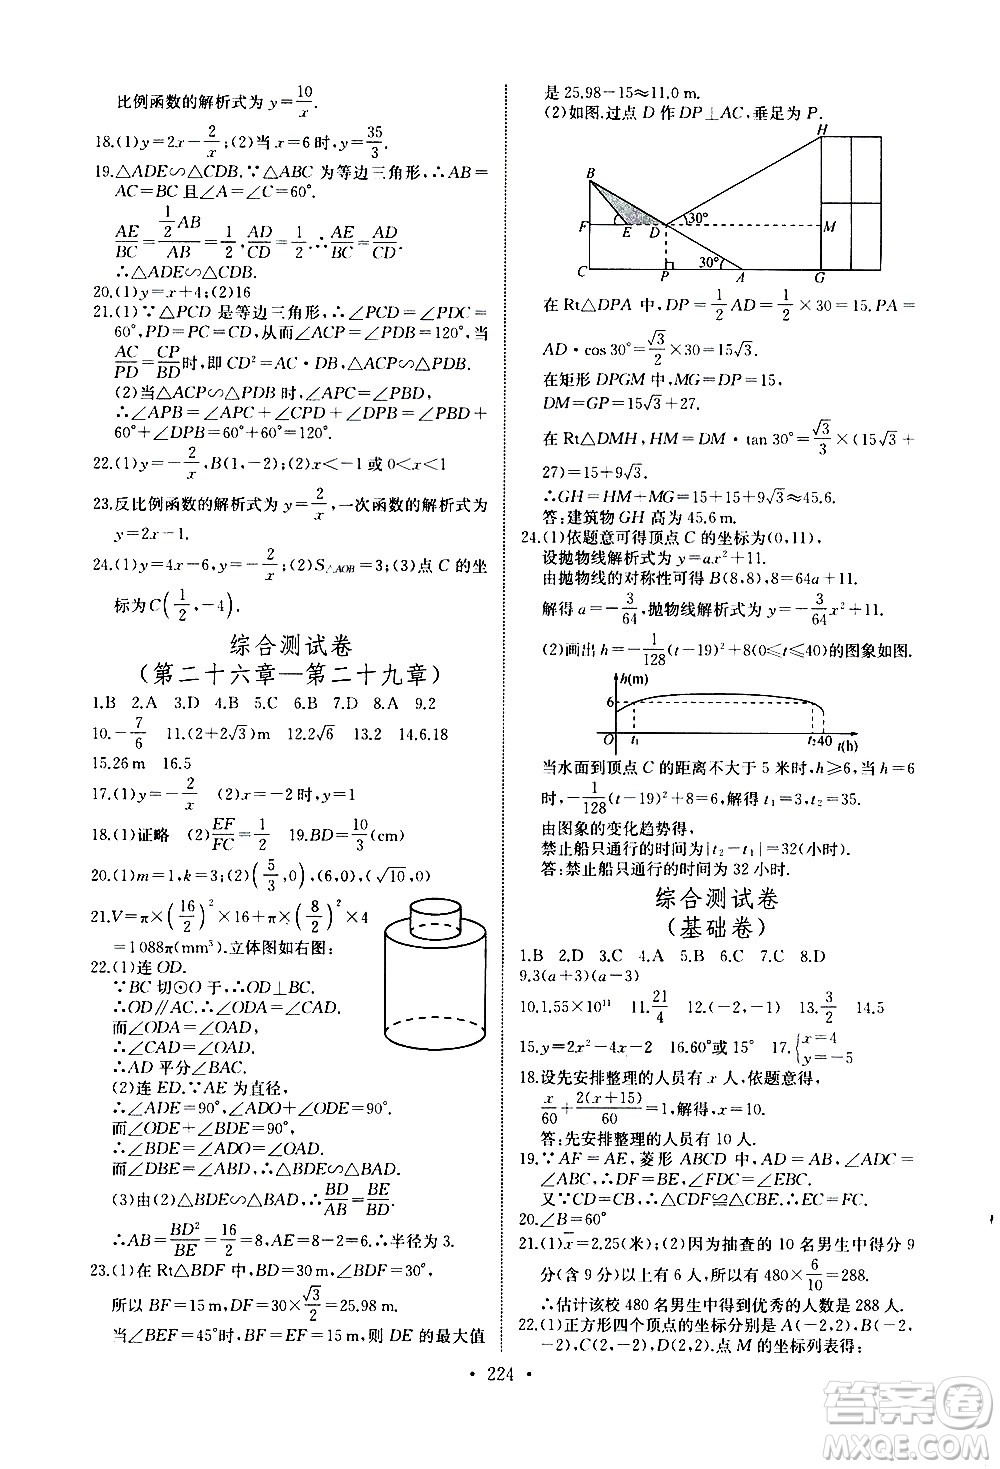 比例函数的解析式为 y=10/x.
18.(1)y=2x-2/x;(2)当 x=6 时,y=35/3.
19.△ADE∽△CDB.∵△ABC 为等边三角形,∴AB=
AC=BC 且∠A=∠C=60°.
AE/BC=(1/2 AB)/AB=1/2,AD/CD=1/2.∴AE/BC=AD/CD.
∴△ADE∽△CDB.
20.(1)y=x+4;(2)16
21.(1)∵△PCD 是等边三角形,∴∠PCD=∠PDC=
60°,PD=PC=CD,从而∠ACP=∠PDB=120°,当
AC/PD=CP/BD时,即 CD²=AC·DB,△ACP∽△PDB.
(2)当△ACP∽△PDB 时,∠APC=∠PBD,
∴∠APB=∠APC+∠CPD+∠DPB=∠PBD+
60°+∠DPB=60°+60°=120°.
22.(1)y=-2/x,B(1,-2);(2)x<-1 或 0<x<1
23.反比例函数的解析式为 y=2/x,一次函数的解析式为
y=2x-1.
24.(1)y=4x-6,y=-2/x;(2)S△AOB=3;(3)点 C 的坐
标为C(1/2,-4).
综合测试卷
(第二十六章—第二十九章)
1.B 2.A 3.D 4.B 5.C 6.B 7.D 8.A 9.2
10.-7/6 11.(2+2√3)m 12.2√6 13.2 14.6.18
15.26 m 16.5
17.(1)y=-2/x (2)x=-2时,y=1
18.(1)证略 (2)EF/FC=1/2 19.BD=10/3(cm)
20.(1)m=1,k=3;(2)(5/3,0),(6,0),(√10,0)
21.V=π×(16/2)²×16+π×(8/2)²×4
=1 088π(mm³).立体图如右图:
22.(1)连 OD.
∵BC 切⊙O 于,∴OD⊥BC.
∴OD∥AC.∴∠ODA=∠CAD.
而∠ODA=∠OAD,
∴∠CAD=∠OAD.
∴AD 平分∠BAC.
(2)连 ED.∵AE 为直径,
∴∠ADE=90°,∠ADO+∠ODE=90°.
而∠ODE+∠BDE=90°,
∴∠BDE=∠ADO=∠OAD.
而∠DBE=∠ABD,∴△BDE∽△BAD.
(3)由(2)△BDE∽△BAD,∴BD/AB=BE/BD.
∴AB=BD²/BE=16/2=8,AE=8-2=6.∴半径为 3.
23.(1)在 Rt△BDF 中,BD=30 m,∠BDF=30°,
所以 BF=15 m,DF=30×√3/2=25.98 m.
当∠BEF=45°时,EF=BF=15 m,则 DE 的最大值
是 25.98-15≈11.0 m.
(2)如图,过点 D 作 DP⊥AC,垂足为 P.
H
B
F
E
D
30°
M
C
P
30°
A
G
在 Rt△DPA 中,DP=1/2 AD=1/2×30=15.PA=
AD·cos 30°=√3/2×30=15√3.
在矩形 DPGM 中,MG=DP=15,
DM=GP=15√3+27.
在 Rt△DMH,HM=DM·tan 30°=√3/3×(15√3+
27)=15+9√3.
∴GH=HM+MG=15+15+9√3≈45.6.
答:建筑物 GH 高为 45.6 m.
24.(1)依题意可得顶点 C 的坐标为(0,11),
设抛物线解析式为 y=ax²+11.
由抛物线的对称性可得 B(8,8),8=64a+11.
解得 a=-3/64,抛物线解析式为 y=-3/64x²+11.
(2)画出 h=-1/128(t-19)²+8(0≤t≤40)的图象如图.
h(m)
6
O
t₁
t₂40
t(h)
当水面到顶点 C 的距离不大于 5 米时,h≥6,当 h=6
时,-1/128(t-19)²+8=6,解得 t₁=3,t₂=35.
由图象的变化趋势得,
禁止船只通行的时间为|t₂-t₁|=32(小时).
答:禁止船只通行的时间为 32 小时.
综合测试卷
(基础卷)
1.B 2.D 3.C 4.A 5.B 6.C 7.C 8.D
9.3(a+3)(a-3)
10.1.55×10¹¹ 11.21/4 12.(-2,-1) 13.3/2 14.5
15.y=2x²-4x-2 16.60°或 15° 17.{x=4 y=-5
18.设先安排整理的人员有 x 人,依题意得,
x/60+2(x+15)/60=1,解得,x=10.
答:先安排整理的人员有 10 人.
19.∵AF=AE,菱形 ABCD 中,AD=AB,∠ADC=
∠ABC,∴DF=BE,∠FDC=∠EBC.
又∵CD=CB,∴△CDF≌△CBE.∴EC=FC.
20.∠B=60°
21.(1)x̄=2.25(米);(2)因为抽查的 10 名男生中得分 9
分(含 9 分)以上有 6 人,所以有 480×6/10=288.
∴估计该校 480 名男生中得到优秀的人数是 288 人.
22.(1)正方形四个顶点的坐标分别是 A(-2,2),B(-2,
-2),C(2,-2),D(2,2).点 M 的坐标列表得:
• 224 •
答案圈
MXQE.COM